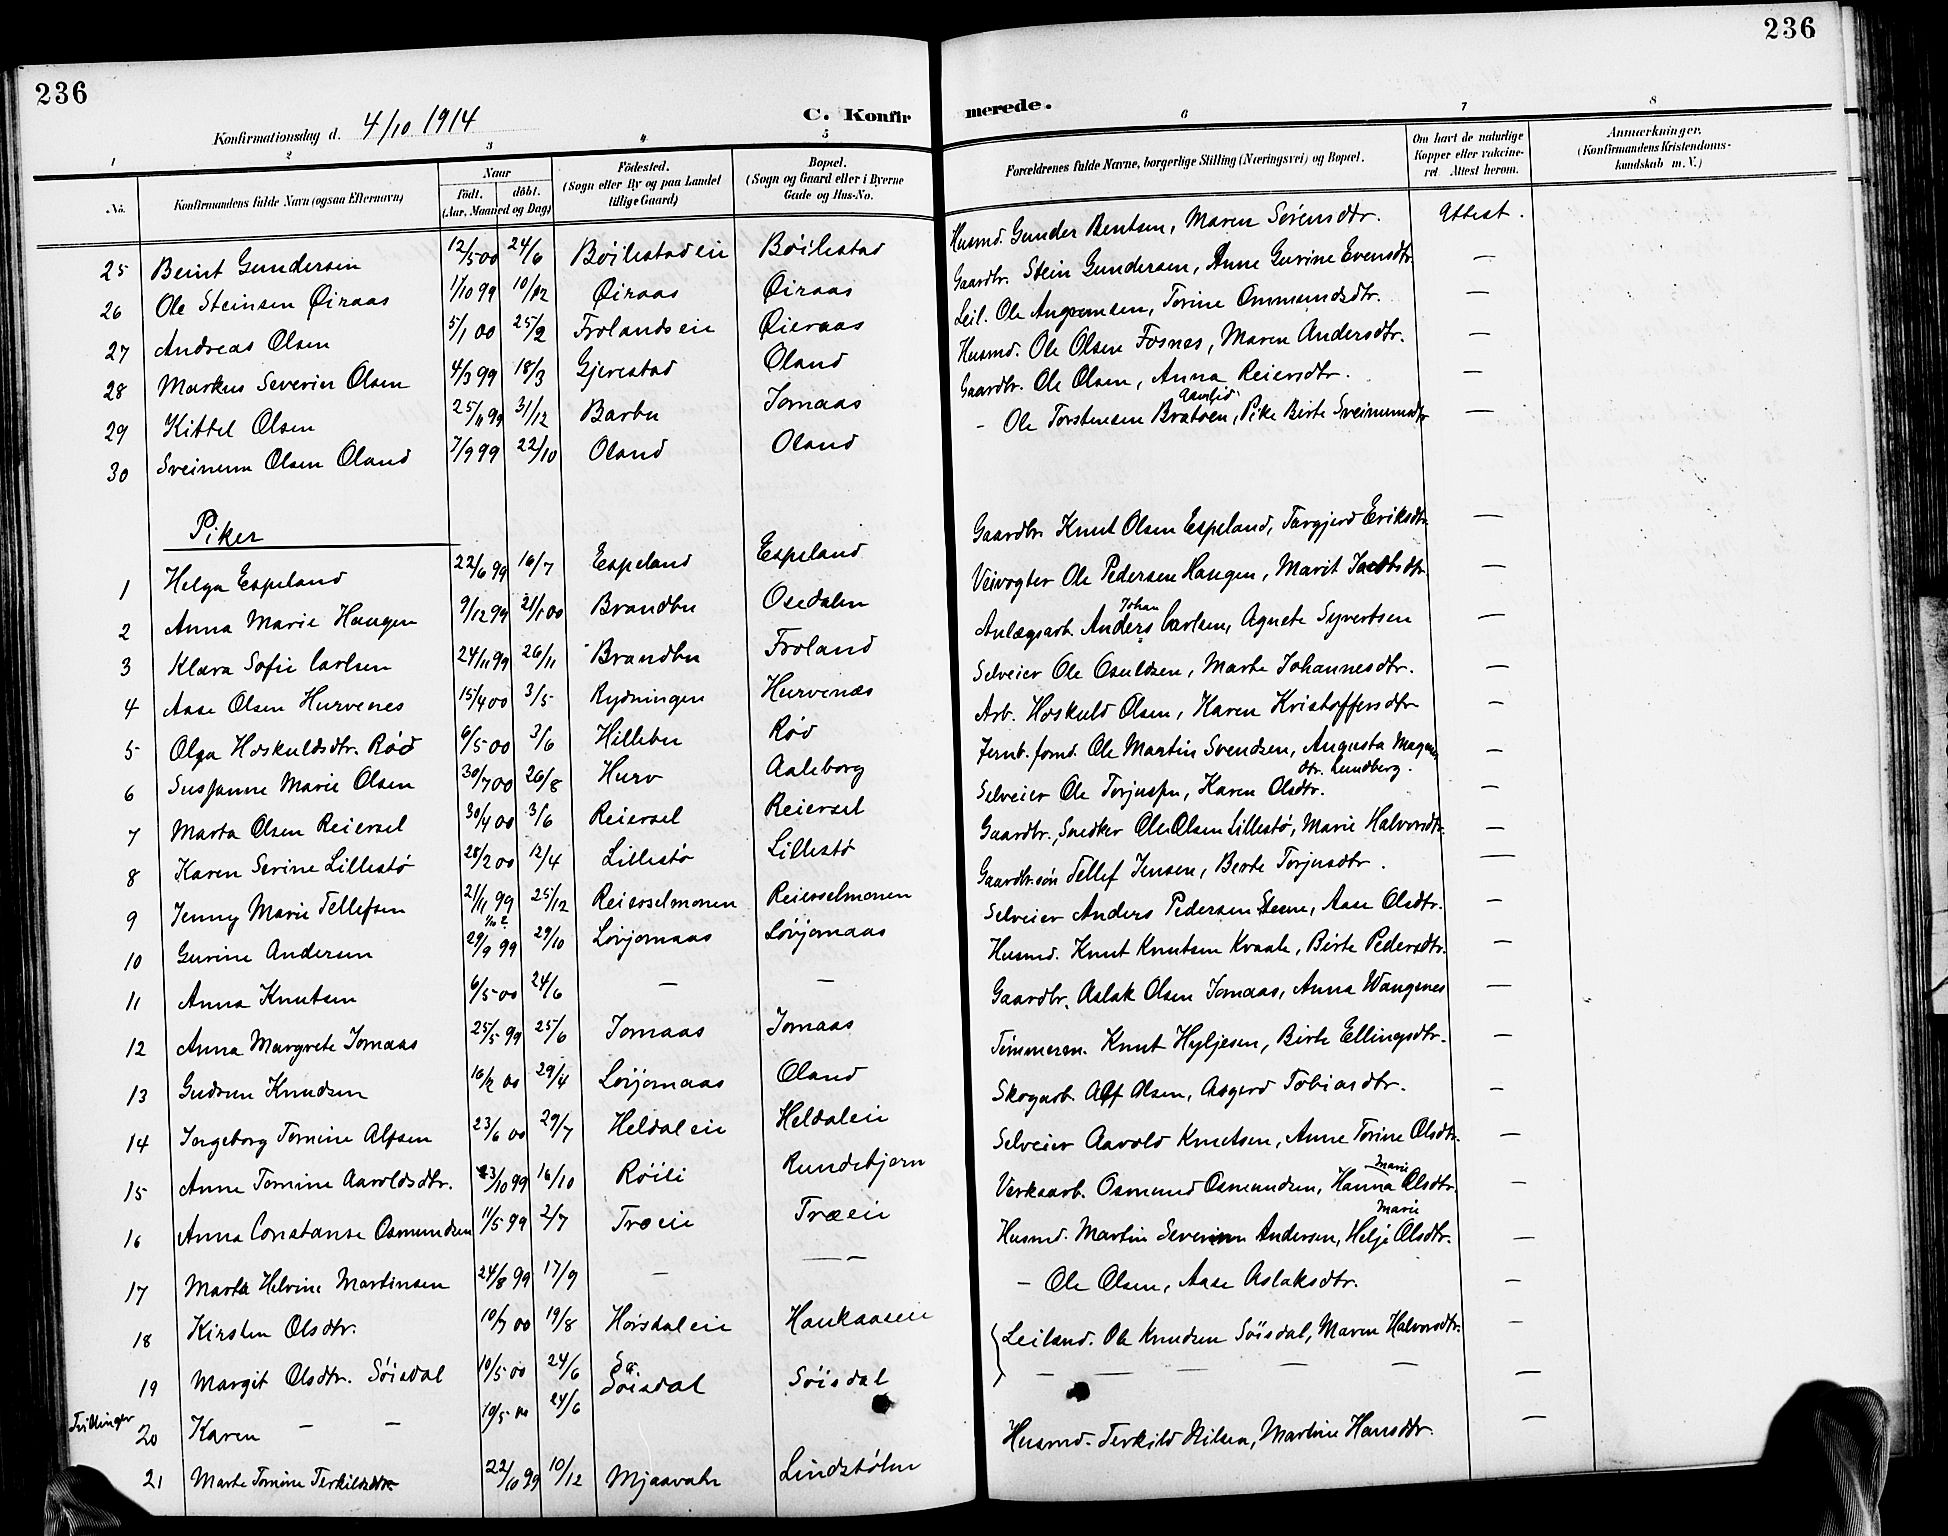 236
236
Konfirmationsdag d. 4/10 1914
C. Konfirmerede.
1 2 3 4 5 6 7 8
No.
Konfirmandens fulde Navn (ogsaa Efternavn)
Naar
Født. døbt.
(Aar, Maaned og Dag)
Fødested.
(Sogn eller By og paa Landet tillige Gaard)
Bopæl.
(Sogn og Gaard eller i Byerne Gade og Hus-No.
Forældrenes fulde Navne, borgerlige Stilling (Næringsvei) og Bopæl.
Om havt de naturlige Kopper eller vakcineret. Attest herom.
Anmærkninger.
(Konfirmandens Kristendomskundskab m. V.)
25 Beint Gundersen 12/5 00 24/6 Bøilestad eie Bøilestad Husmd. Gunder Bentsen, Maren Sørensdtr. Attest.
26 Ole Steinsen Øiraas 1/10 99 10/12 Øiraas Øiraas Gaardbr. Stein Gundersen, Anne Gurine Evensdtr. —
27 Andreas Olsen 5/1 00 25/2 Frolands eie Øieraas Leil. Ole Ommundsdtr. —
28 Markus Severin Olsen 4/3 99 18/3 Gjerestad Oland Husmd. Ole Olsen Fosnes, Maren Andersdtr. —
29 Kittel Olsen 25/11 99 31/12 Barbu Jomaas Gaardbr. Ole Olsen, Anna Reiersdtr. —
30 Sveinum Olsen Oland 7/9 99 22/10 Oland Oland - Ole Torstensen Bratoen, Pike Birte Sveinumsdtr —
Piker
1 Helga Espeland 22/6 99 16/7 Espeland Espeland Gaardbr. Knut Olsen Espeland, Targjerd Eriksdtr. —
2 Anna Marie Haugen 9/12 99 21/1 00 Brandbu Osedalen Veivogter Ole Pedersen Haugen, Marit —
3 Klara Sofie Carlsen 24/11 99 26/11 Brandbu Froland Anlægsarb. Anders Johan Carlsen, Agnete Syvertsen —
4 Aase Olsen Hurvenes 15/4 00 3/5 Rydningen Hurvenæs Selveier Ole Osuldsen, Marte Johannesdtr. —
5 Olga Hoskuldsdtr. Rød 6/5 00 3/6 Hillebu Rød Arb. Hoskuld Olsen, Karen Kristoffersdtr —
6 Susanne Marie Olsen 30/7 00 26/8 Hurv Aalborg Jernb. formd. Ole Martin Svendsen, Augusta Magnusdtr. Lundberg. —
7 Marta Olsen Reiersel 30/4 00 3/6 Reiersel Reiersel Selveier Ole Torjussen, Karen Olsdtr. —
8 Karen Serine Lillestø 28/2 00 12/4 Lillestø Lillestø Gaardbr., Snedker Ole Olsen Lillestø, Marie Halvorsdtr. —
9 Jenny Marie Tellefsen 21/11 99 25/12 Reierselmonen Reierselmonen Gaardbr.søn Tellef Jensen, Berte Torjusdtr. —
10 Gurine Andersen 29/9 99 29/10 Løvjomaas Løvjomaas Selveier Anders Pedersen Steene, Aase Olsdtr. —
11 Anna Knutsen 6/5 00 24/6 — — Husmd. Knut Knutsen Kvaale, Birte Pedersdtr. —
12 Anna Margrete Jomaas 25/5 99 25/6 Jomaas Jomaas Gaardbr. Aslak Olsen Jomaas, Anna Vangsnes —
13 Gudrun Knudsen 16/2 00 29/4 Løvjomaas Oland Tømmerm. Knut Hyljesen, Birte Ellingsdtr. —
14 Ingeborg Tomine Alfsen 23/6 00 29/7 Heldal eie Heldal eie Skogarb. Alf Olsen, Asgerd Tobiasdtr. —
15 Anne Tomine Aaroldsdtr. 23/10 99 16/10 Røili Rundebjern Selveier Aarold Knutsen, Anne Torine Olsdtr. —
16 Anna Constanse Osmundsen 11/5 99 2/7 Træeie Træeie Verksarb. Osmund Osmundsen, Hanna Marie Olsdtr. —
17 Marta Helvine Martinsen 24/8 99 17/9 — — Husmd. Martin Severin Andersen, Helje Marie Olsdtr. —
18 Kirsten Olsdtr. 10/7 00 19/8 Hørsdal eie Haukaaseie — Ole Olsen, Aase Aslaksdtr. —
19 Margit Olsdtr. Søisdal 10/5 00 24/6 Søisdal Søisdal Leiland. Ole Knudsen Søisdal, Maren Halvorsdtr. —
Tvillinger 20 Karen — — 10/5 00 24/6 — — — — —
21 Marte Tomine Terkildsdtr. 22/10 99 10/12 Mjaavatn Lindstølen Husmd. Terkild Nilsen, Martine Hansdtr. —